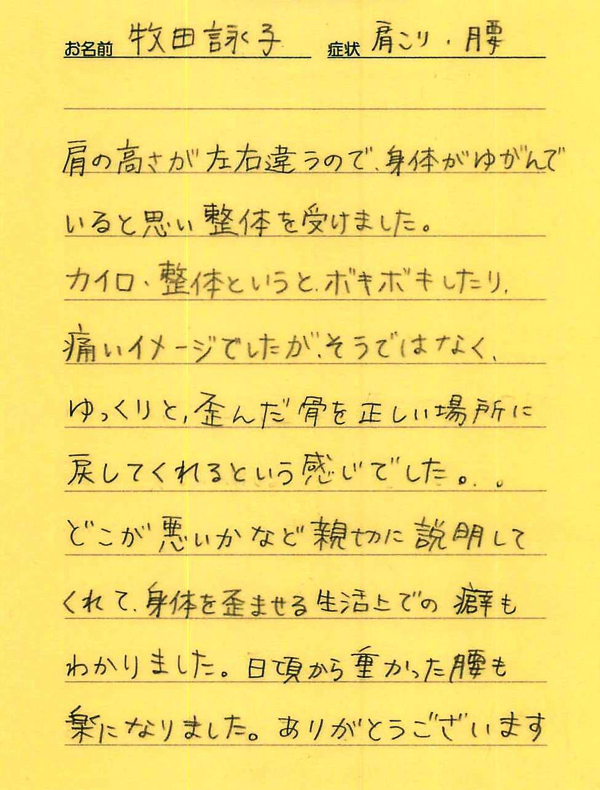 お名前 牧田詠子 症状 肩こり・腰
肩の高さが左右違うので、身体がゆがんで
いると思い整体を受けました。
カイロ・整体というと、ボキボキしたり、
痛いイメージでしたが、そうではなく、
ゆっくりと、歪んだ骨を正しい場所に
戻してくれるという感じでした。..
どこが悪いかなど親切に説明して
くれて、身体を歪ませる生活上での癖も
わかりました。日頃から重かった腰も
楽になりました。ありがとうございます